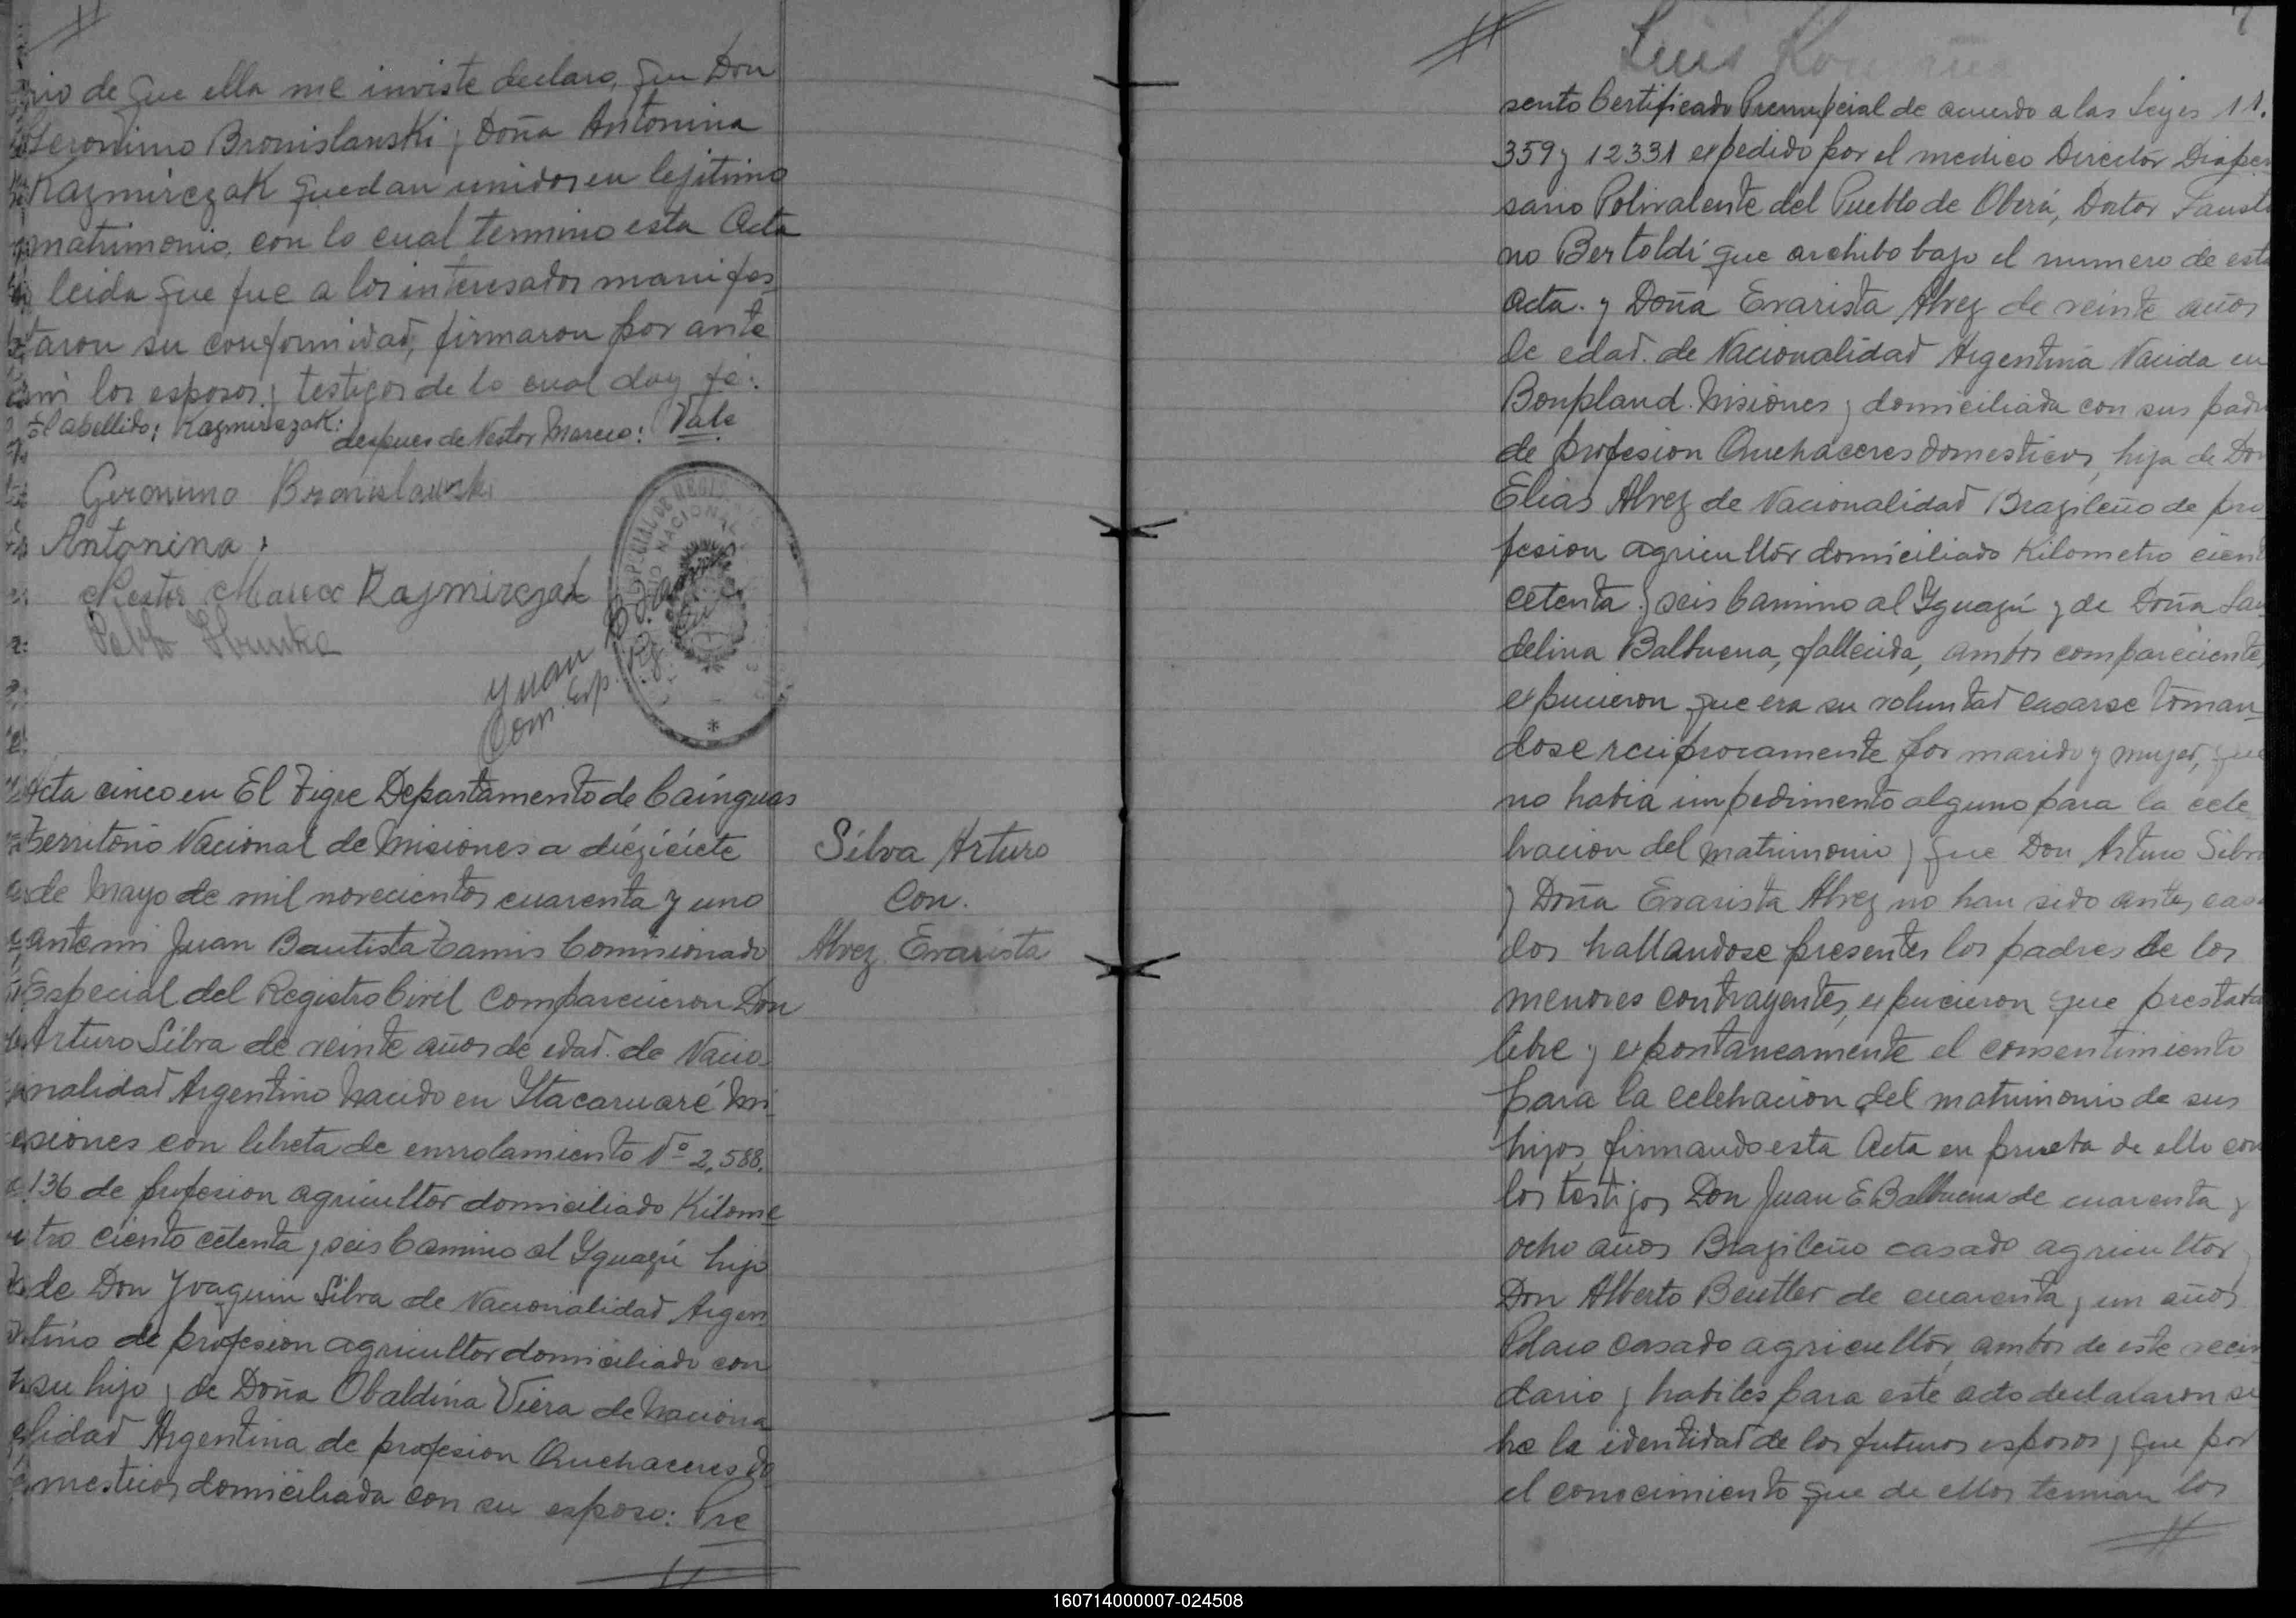 rio de que ella me inviste declaro, que Don
Geronimo Bronislanski y Doña Antonina
Kazmirczak quedan unidos en lejitimo
matrimonio, con lo cual termino esta Acta
leida que fue a los interesados manifes
taron su conformidad, firmaron por ante
mi los esposos y testigos de lo cual doy fé:
El apellido: Kazmirczak: despues de Nestor Marcco: Vale
Geronimo Bronislawski
Antonina
Nestor Marcco Kazmirczak
Pablo
Juan B.
Com. Esp. Rg.
Acta cinco en El Tigre Departamento de Cainguas
Territorio Nacional de Misiones a diéziciete
de Mayo de mil novecientos cuarenta y uno
ante mi Juan Bautista Tamis Comisionado
Especial del Registro Civil comparecieron Don
Arturo Silva de veinte años de edad. de Nacio
nalidad Argentino Nacido en Ytacaruaré Mi
siones con libreta de enrrolamiento Nº 2,588,
136 de profesion agricultor domiciliado Kilome
tro ciento cetenta y seis Camino al Yguazú hijo
de Don Joaquin Silva de Nacionalidad Argen
tino de profesion agricultor domiciliado con
su hijo y de Doña Obaldina Viera de Naciona
lidad Argentina de profesion Quehaceres do
mesticos domiciliada con su esposo: Pre
Silva Arturo
Con.
Alvez Evarista
7
Luis
sento Certificado Prenupcial de acuerdo a las Leyes 11.
359 y 12331 expedido por el medico Director Dispen
sario Polivalente del Pueblo de Oberá, Doctor Fausti
no Bertoldi que archibo bajo el numero de esta
acta. y Doña Evarista Alvez de veinte años
de edad. de Nacionalidad Argentina Nacida en
Bonpland. Misiones y domiciliada con sus padre
de profesion Quehaceres domesticos, hija de Don
Elias Alvez de Nacionalidad Brazileño de pro
fesion agricultor domiciliado Kilometro cient
cetenta y seis Camino al Yguazú y de Doña Lau
delina Balbuena, fallecida, ambos compareciente,
expucieron que era su voluntad casarse toman
dose reciprocamente por marido y mujer, que
no habia impedimento alguno para la cele
bracion del matrimonio y que Don Arturo Silva
y Doña Evarista Alvez no han sido antes casa
dos hallandose presentes los padres de los
menores contrayentes, expucieron que prestaba
libre y expontaneamente el consentimiento
para la celebracion del matrimonio de sus
hijos, firmando esta Acta en prueba de ello con
los testigos Don Juan E Balbuena de cuarenta y
ocho años Brazileño casado agricultor y
Don Alberto Beutler de cuarenta y un años
Polaco casado agricultor, ambos de este vecin
dario y habiles para este acto declararon so
bre la identidad de los futuros esposos y que por
el conocimiento que de ellos tenian los
160714000007-024508